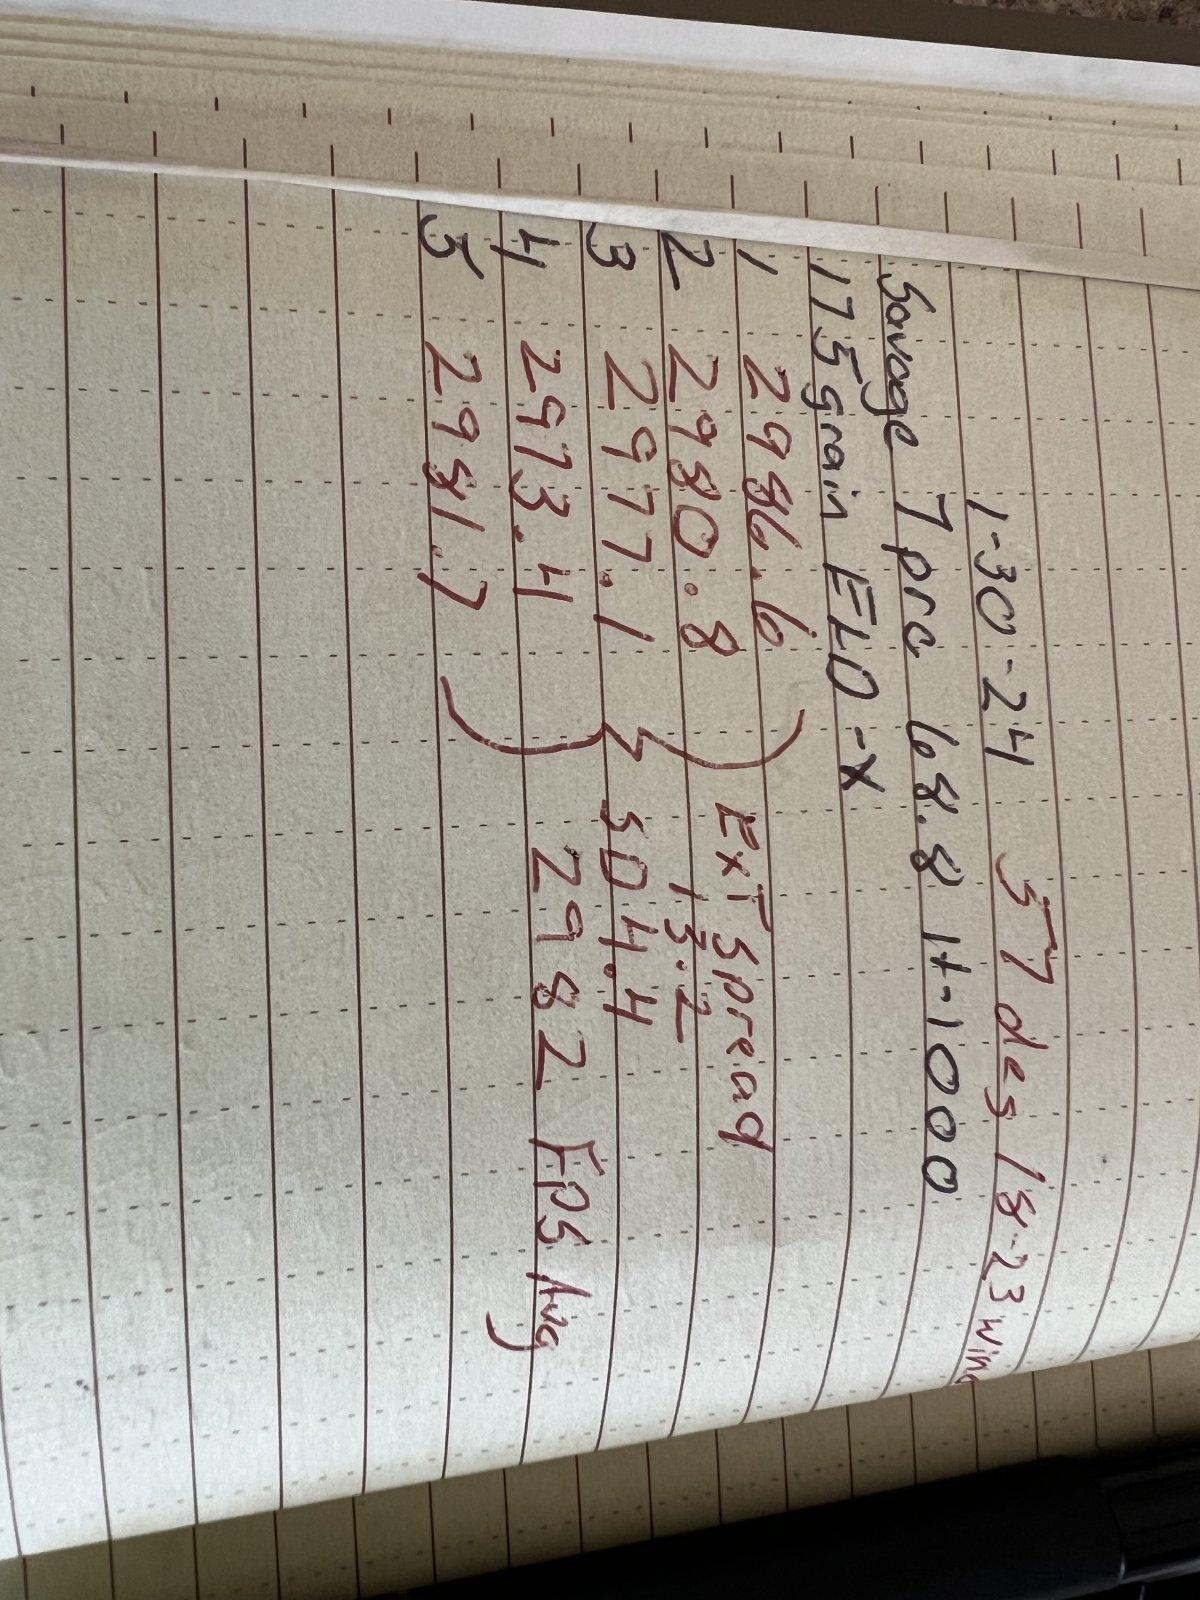 1-30-24 57 deg 18-23 wind
Savage 7 prc 68.8 H-1000
175 grain ELD-X
1 2986.6
2 2980.8
3 2977.1
4 2973.4
5 2981.7
Ext spread
13.2
SD 4.4
2982 Fps Avg